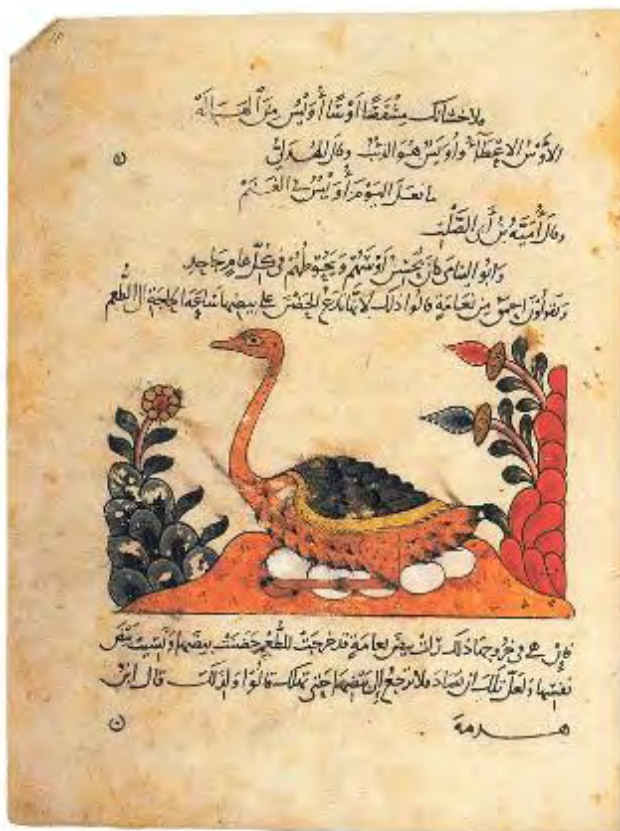 فلاحشانك مشقصًا اوسًا أويس من الهباله
الاوس الاعطاء وأويس هو الذئب وقال الهذلي
ما فعل اليوم أويس في الغنم
وقال أمية بن أبي الصلت
وابو اليتامى كان يحسن اوسهم ويحوطهم في كل عام جاحد
ويقولون احمق من نعامة قالوا ذلك لانها تدع الحضن على بيضها ساعة الحاجة الى الطعم
فان هي في خروجها ذلك رات بيض نعامة قد خرجت للطعم حضنت بيضها ونسيت بيض
نفسها ولعل تلك ان تصاد فلا ترجع الى بيضها حتى تهلك قالوا ولذلك قال ابن
هرمة